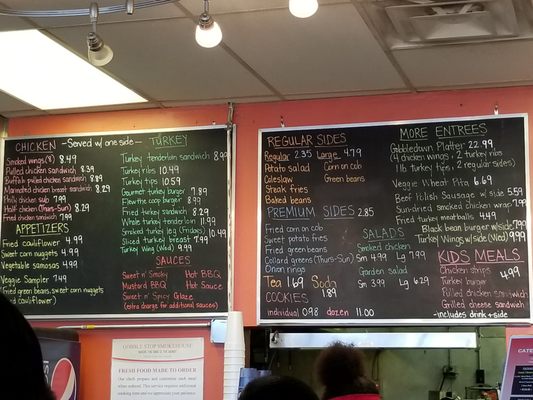 CHICKEN -Served w/ one side- TURKEY
Smoked wings (8) 8.49
Pulled chicken sandwich 8.39
Buffalo pulled chicken sandwich 8.89
Marinated chicken breast sandwich 8.29
Philly chicken sub 7.99
Half chicken (Thurs-Sun) 8.29
Fried chicken sandwich 7.99
APPETIZERS
Fried cauliflower 4.99
Sweet corn nuggets 4.99
Vegetable samosas 4.99
Veggie Sampler 7.49
(Fried green beans, sweet corn nuggets
& fried cauliflower)
Turkey tenderloin sandwich 8.99
Turkey ribs 10.49
Turkey tips 10.59
Gourmet turkey burger 7.89
Flew the coop burger 8.99
Fried turkey sandwich 8.29
Whole turkey tenderloin 11.99
Smoked turkey leg (Fridays) 10.49
Sliced turkey breast 7.99
Turkey Wing (Wed) 9.99
SAUCES
Sweet n' Smoky Hot BBQ
Mustard BBQ Hot Sauce
Sweet n' Spicy Glaze
(extra charge for additional sauces)
REGULAR SIDES
Regular 2.35 Large 4.79
Potato salad Corn on cob
Coleslaw Green beans
Steak fries
Baked beans
PREMIUM SIDES 2.85
Fried corn on cob
Sweet potato fries
Fried green beans
Collard greens (Thurs-Sun)
Onion rings
Tea 1.69 Soda 1.89
COOKIES
individual 0.98 dozen 11.00
SALADS
Smoked chicken
Sm 4.99 Lg 7.99
Garden salad
Sm 3.99 Lg 6.29
MORE ENTREES
Gobbledawn Platter 22.99
(4 chicken wings, 2 turkey ribs
1 lb turkey tips, 2 regular sides)
Veggie Wheat Pita 6.69
Beef Polish Sausage w/ side 5.59
Sun-dried smoked chicken wrap 7.99
Fried turkey meatballs 4.49
Black bean burger w/side 7.99
Turkey Wings w/side (Wed) 9.99
KIDS MEALS
Chicken strips 4.99
Turkey burger
Pulled chicken sandwich
Grilled cheese sandwich
-includes drink + side
GOBBLE STOP SMOKEHOUSE
FRESH FOOD MADE TO ORDER
pepsi